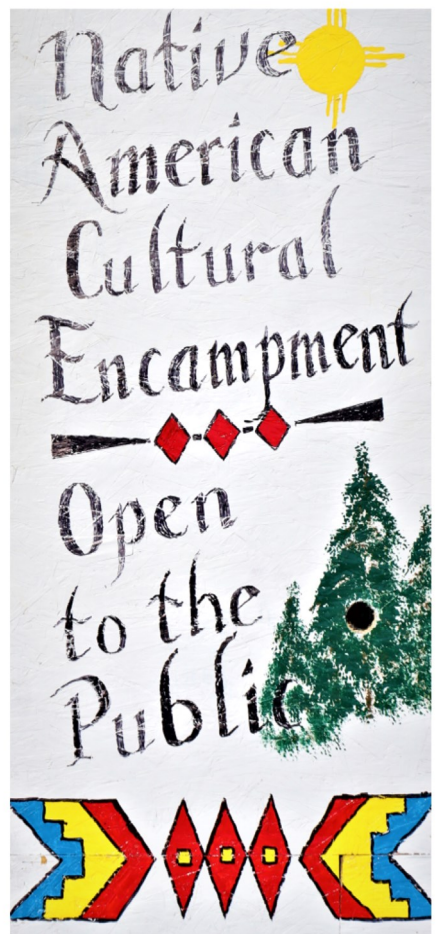 Native
American
Cultural
Encampment
Open
to the
Public